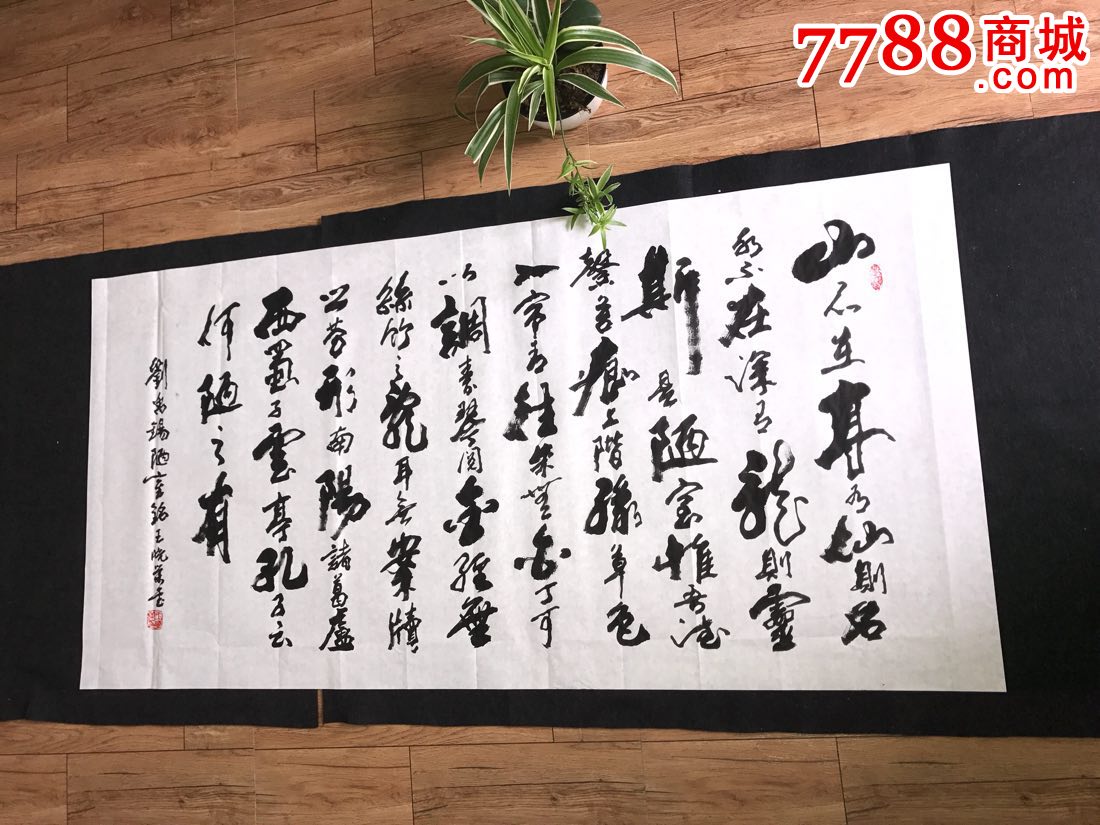 7788商城
.com
山不在高有仙則名
水不在深有龍則靈
斯是陋室惟吾德
馨苔痕上階綠草色
入帘青往来無白丁可
以調素琴閱金經無
絲竹之亂耳無案牘
之勞形南陽諸葛廬
西蜀子雲亭孔子云
何陋之有
劉禹錫陋室銘王